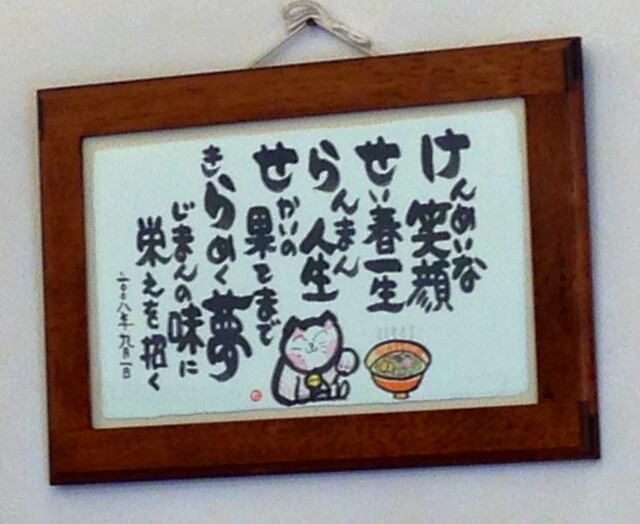 けんめいな
笑顔
せい春一生
らんまん
人生
せかいの
果てまで
きらめく夢
じまんの味に
栄えを招く
二〇〇八年九月一日